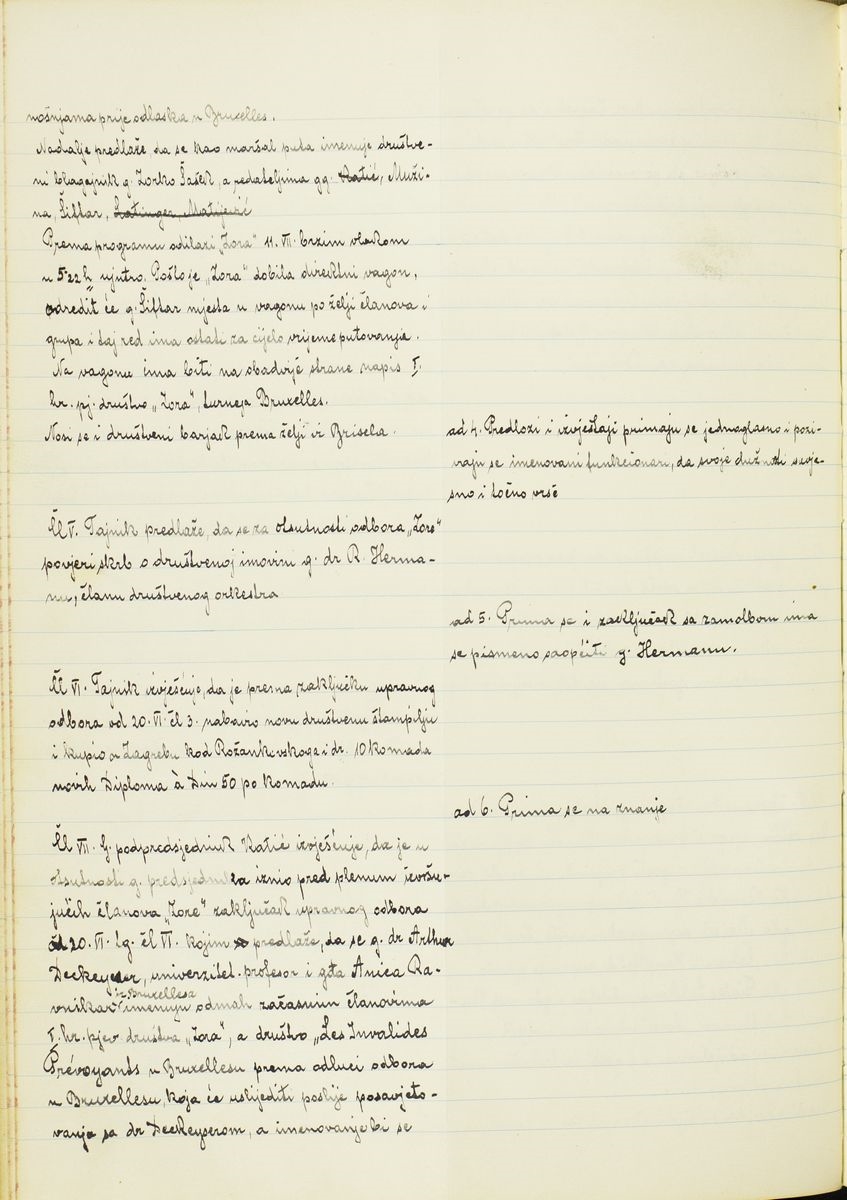 nošnjama prije odlaska u Bruxelles.
Nadalje predlaže, da se kao maršal puta imenuje društve-
ni blagajnik g. Zorko Šašek, a redateljima gg. Katić, Muži-
na, Šiftar, Latinger, Matijević
Prema programu odilazi „Zora" 11. VII. brzim vlakom
u 5.22 h ujutro. Pošto je „Zora" dobila direktni vagon,
odredit će g. Šiftar mjesta u vagonu po želji članova i
grupa i taj red ima ostati za cijelo vrijeme putovanja.
Na vagonu ima biti na obadvije strane napis I.
hr. pj. društvo „Zora", turneja Bruxelles.
Nosi se i društveni barjak prema želji iz Brisela.
ad 4. Predlozi i izvještaji primaju se jednoglasno i pozi-
vaju se imenovani funkcionari, da svoje dužnosti savje-
sno i točno vrše
Čl V. Tajnik predlaže, da se za otsutnosti odbora „Zore"
povjeri skrb o društvenoj imovini g. dr R. Herma-
nu, članu društvenog orkestra
ad 5. Prima se i zaključak sa zamolbom ima
se pismeno saopćiti g. Hermanu.
Čl VI. Tajnik izvješćuje, da je prema zaključku upravnog
odbora od 20. VI. čl 3. nabavio novu društvenu štampilju
i kupio u Zagrebu kod Rožankovskoga i dr. 10 komada
novih Diploma à Din 50 po komadu.
ad 6. Prima se na znanje
Čl VII. G. podpredsjednik Katić izvješćuje, da je u
otsutnosti g. predsjednika iznio pred plenum izvršu-
jućih članova „Zore" zaključak upravnog odbora
od 20. VI. t.g. čl VI. kojim predlaže, da se g. dr Arthur
Deckeyser, univerzitet. profesor i gđa Anica Ra-
iz Bruxellesa
vnikar imenuju odmah začasnim članovima
I. hr. pjev društva „Zora", a društvo „Les Invalides
Prévoyants u Bruxellesu prema odluci odbora
u Bruxellesu, koja će uslijediti poslije posavjeto-
vanja sa dr Deckeyserom, a imenovanje bi se